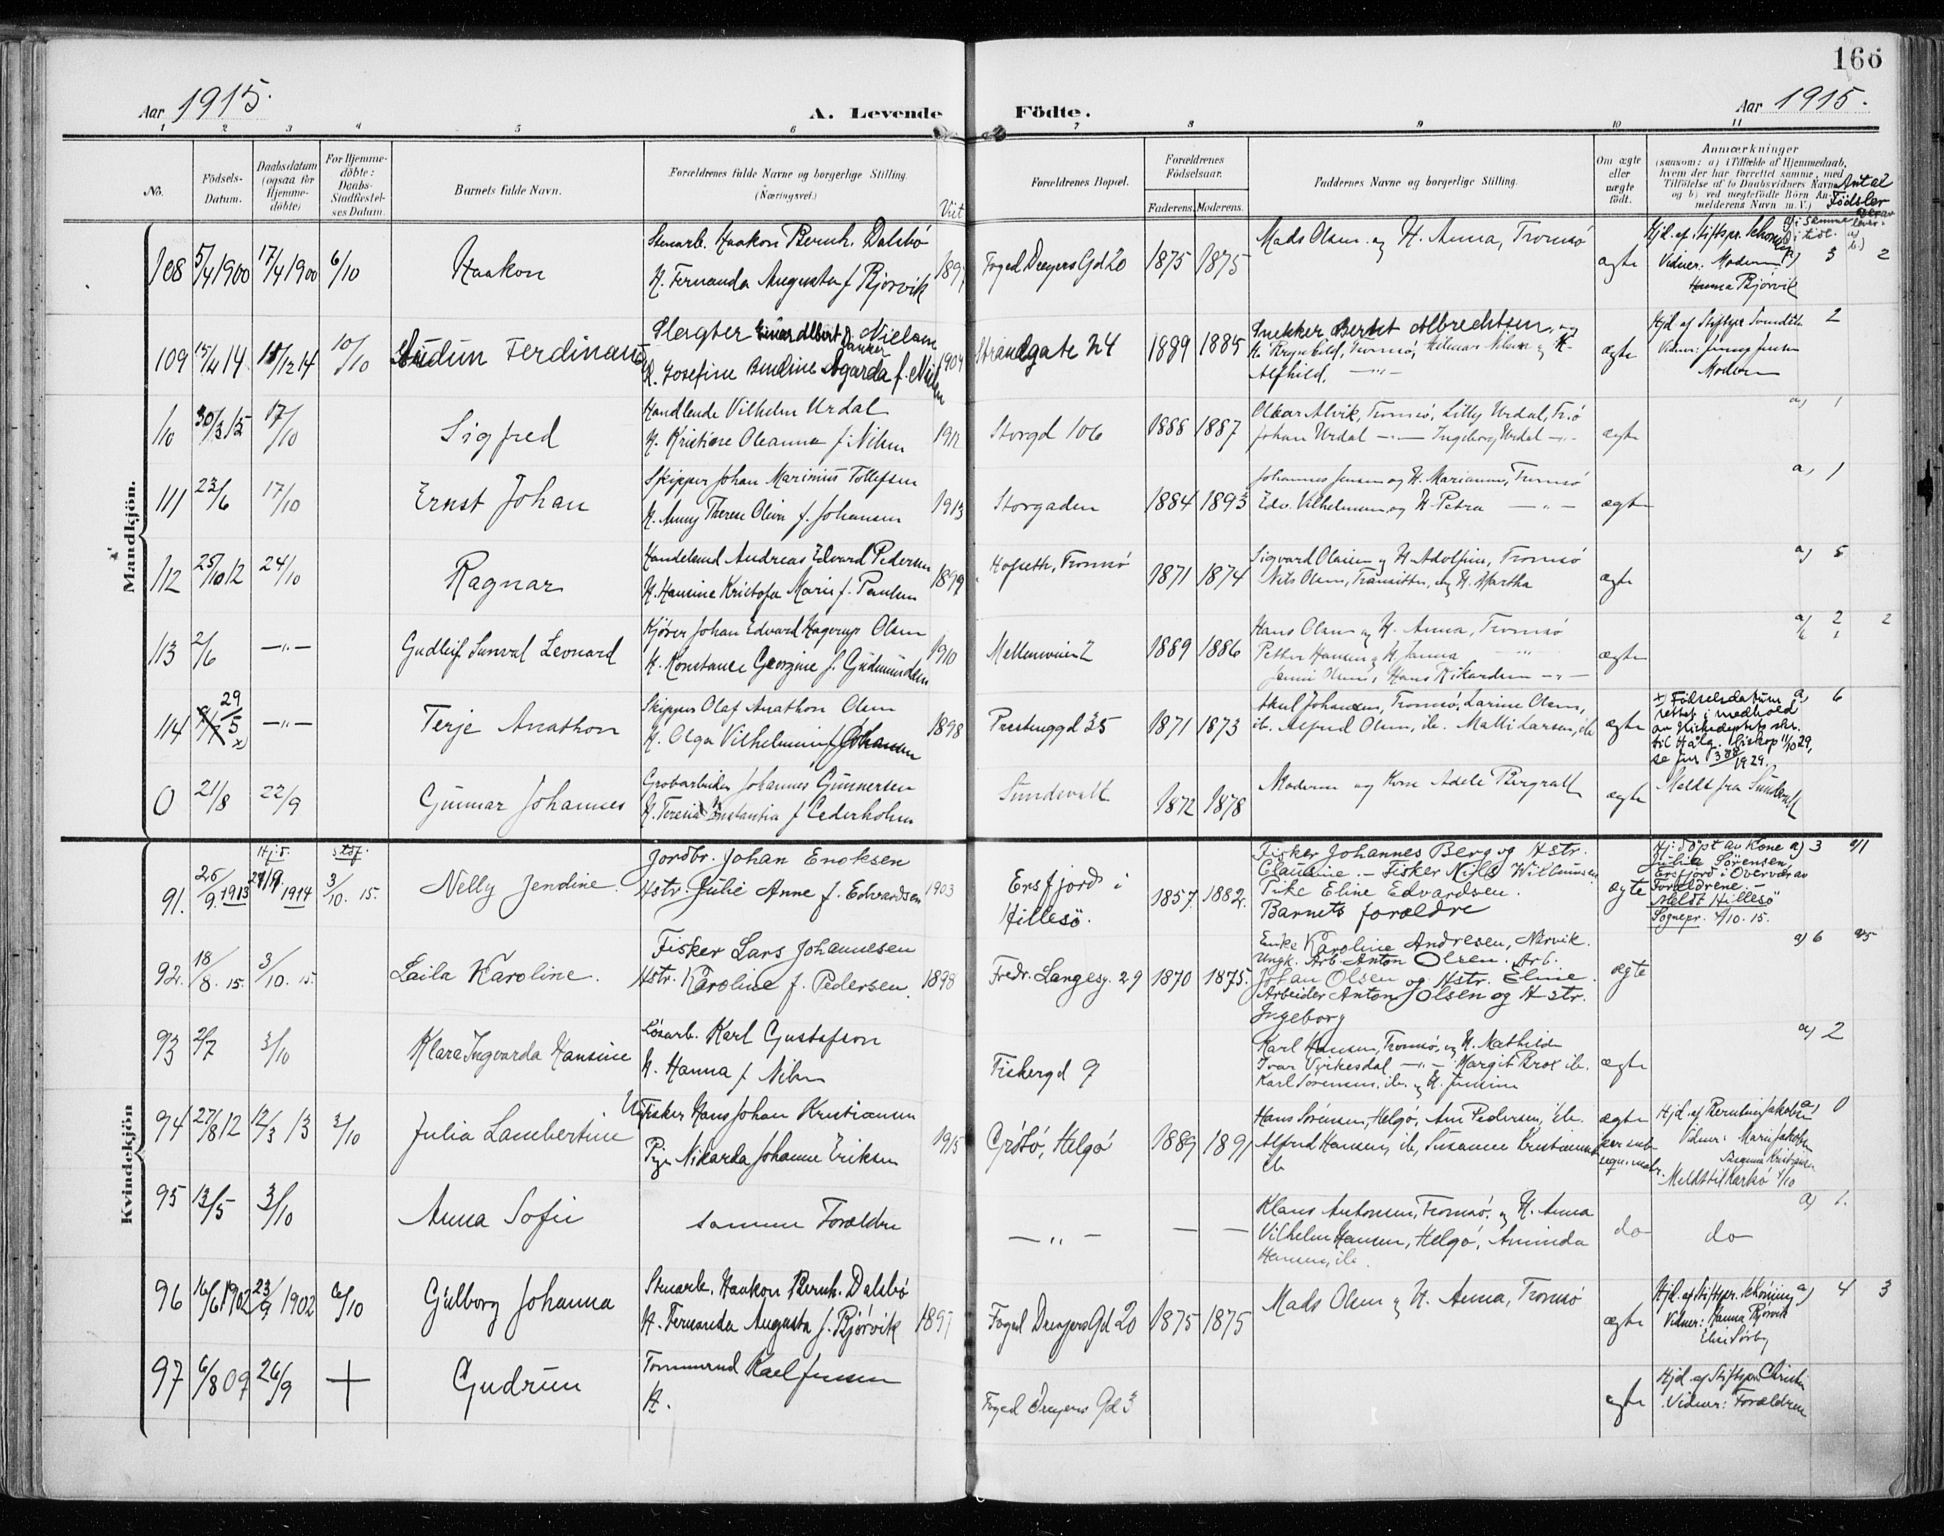 166
Aar 1915.
A. Levende Födte.
Aar 1915.
1 2 3 4 5 6 7 8 9 10 11
No.
Födsels-Datum.
Daabsdatum (ogsaa for Hjemmedöbte)
For Hjemmedöbte: Daabs-Stadfæstelses Datum.
Barnets fulde Navn.
Forældrenes fulde Navne og borgerlige Stilling. (Næringsvei.)
Viet
Forældrenes Bopæl.
Forældrenes Födselsaar.
Faderens. Moderens.
Faddernes Navne og borgerlige Stilling.
Om ægte eller uægte födt.
Anmærkninger
(saasom: a) i Tilfælde af Hjemmedaab, hvem der har forrettet samme, med Tilföielse af to Daabsvidners Navne og b) ved uægtefödte Börn Anmelderens Navn m. V.)
Antal Födsler
Mandkjön.
108 5/4 1900 17/4 1900 6/10 Haakon
Stenarb. Haakon Bernh. Dalsbö
H. Fernanda Augusta f. Bjørvik 1897
Foged Dreyers Gd 20 1875 1875
Mads Olsen og H. Anna, Tromsö
ægte
Hjd. af Stiftspr. Schöning
Vidner: Moderen
Hanna Bjørvik
3 2
109 15/4 14 18/12 14 10/10 Audun Ferdinand
Slagter Einar Albert Nielsen
H. Josefine Bendine Agarda f. Nielsen 1909
Strandgate 24 1889 1885
Snekker Bernt Albrechtsen og
Alfhild. -"-
ægte
Moderen
2
110 30/3 15 17/10 Sigfred
Handlende Vilhelm Urdal
H. Kristine Oleanna f. Nilsen 1912
Storgd 106 1888 1887
Oskar Alvik, Tromsö, Lilly Urdal, Tr.ö
Johan Urdal -"- Ingeborg Urdal -"-
ægte
a) 1
111 23/6 17/10 Ernst Johan
Skipper Johan Marinius Tollefsen
H. Anny Therese Oliva f. Johansen 1913
Storgaden 1884 1893
Johannes Jensen og H. Marianne, Tromsö
Edv. Vilhelmsen og H. Petra -"-
ægte
a) 1
112 25/10 12 24/10 Ragnar
Handelsmd Andreas Edvard Pedersen
H. Hansine Kristofa Marie f. Paulsen 1899
Hofseth, Tromsö 1871 1874
Sigvard Olsen og H. Adolfine, Tromsö
Nils Olsen, Tromsö, og H. Hartha
ægte
a) 5
113 2/6 -"- Gudleif Sunval Leonard
Kjörer Johan Edvard Hagerup Olsen
H. Konstance Georgine f. Gudmundsen 1910
Mellemveien 2 1889 1886
Hans Olsen og H. Anna, Tromsö
Petter Hansen og H. Janna -"-
Hans Rikardsen -"-
ægte
a) 2 2
114 29/5 x) -"- Terje Anathon
Skipper Olaf Anathon Olsen
H. Olga Vilhelmine f. Johansen 1898
Prestenggd 35 1871 1873
Skul Johansen, Tromsö, Larine Olsen,
ib. Alfred Olsen, ib. Malli Larsen, ib
ægte
x) Födselsdatum
rettet i medhold
av Kirkedeptets skr.
til Hålg. biskop 11/10 29,
se jnr 388/1929.
a) 6
0 21/8 22/9 Gunnar Johannes
Grobarbeider Johannes Gunnersen
H. Teresia Constantia f. Cederholm
Sundsvall 1872 1878
Moderen og Kone Adele Bergvall
ægte
Meldt fra Sundsvall
Kvindekjön
91. 26/9 1913 Hj.d. 27/9 1914 Stdf. 3/10. 15. Nelly Jendine.
Jordbr. Johan Enoksen
Hstr. Julie Anne f. Edvardsen 1903
Ersfjord i
Hillesö. 1857. 1882.
Fisker Johannes Berg og Hstr.
Claudine. - Fisker Nils Wilhumsen
Pike Eline Edvardsen.
Barnets forældre
ægte
Hj: döpt av Kone
Julie Sörensen,
Ersfjord i Overvær av
Forældrene. -
Meldt Hillesö
Sognepr. 4/10. 15.
a) 3
92. 18/8. 15. 3/10. 15. Laila Karoline.
Fisker Lars Johannesen
Hstr. Karoline f. Pedersen. 1898
Fredr. Langesg. 29 1870 1875.
Enke Karoline Andresen, Narvik.
Ungk. Arb. Anton Olsen. Arb.
Johan Olsen og Hstr. Eline.
Arbeider Anton Olsen og Hstr.
Ingeborg
ægte
a) 6
93 2/7 3/10 Klara Ingvarda Hansine
Løsarb. Karl Gustafson
H. Hanna f. Nilsen
Fiskergd 9
Karl Hansen, Tromsö, og H. Mathilde
Ivar Virkesdal -"- Margit Brox ib.
Karl Sörensen, ib. og H. Jensine
ægte
a) 2
94 27/8 12 12/3 13 3/10 Julia Lambertine
Fisker Hans Johan Kristiansen
Pige Nikarda Johanne Eriksen 1915
Grötö, Helgö 1889 1891
Hans Sörensen, Helgö, Ane Pedersen, ib.
Alfred Hansen, ib, Susanne Kristiansen
ib
ægte
per sub-
sequ. matr.
Hjd. af Berntine Jakobsen
Vidner: Marie Jakobsen
Susanna Kristiansen
Meldt til Karlsö 4/10
a) 0
95 13/5 3/10 Anna Sofie
samme Forældre
-"- - -
Klaus Antonsen, Tromsö, og H. Anna
Vilhelm Hansen, Helgö, Aminda
Hansen, ib.
do do
a) 1.
96 16/6 1902 23/9 1902 6/10 Gulborg Johanna
Stenarb. Haakon Bernh. Dalsbö
H. Fernanda Augusta f. Bjørvik 1897
Foged Dreyers Gd 20 1875 1875
Mads Olsen og H. Anna, Tromsö
ægte
Hjd. af Stiftspr. Schöning
Vidner: Hanna Bjørvik
Elise Sörby
a) 4 3
97 6/8 09 26/9 + Gudrun
Tömmermd Karl Jensen
H.
Foged Dreyers Gd 3
ægte
Hjd. af Stiftspr. Christie
Vidner: Forældrene